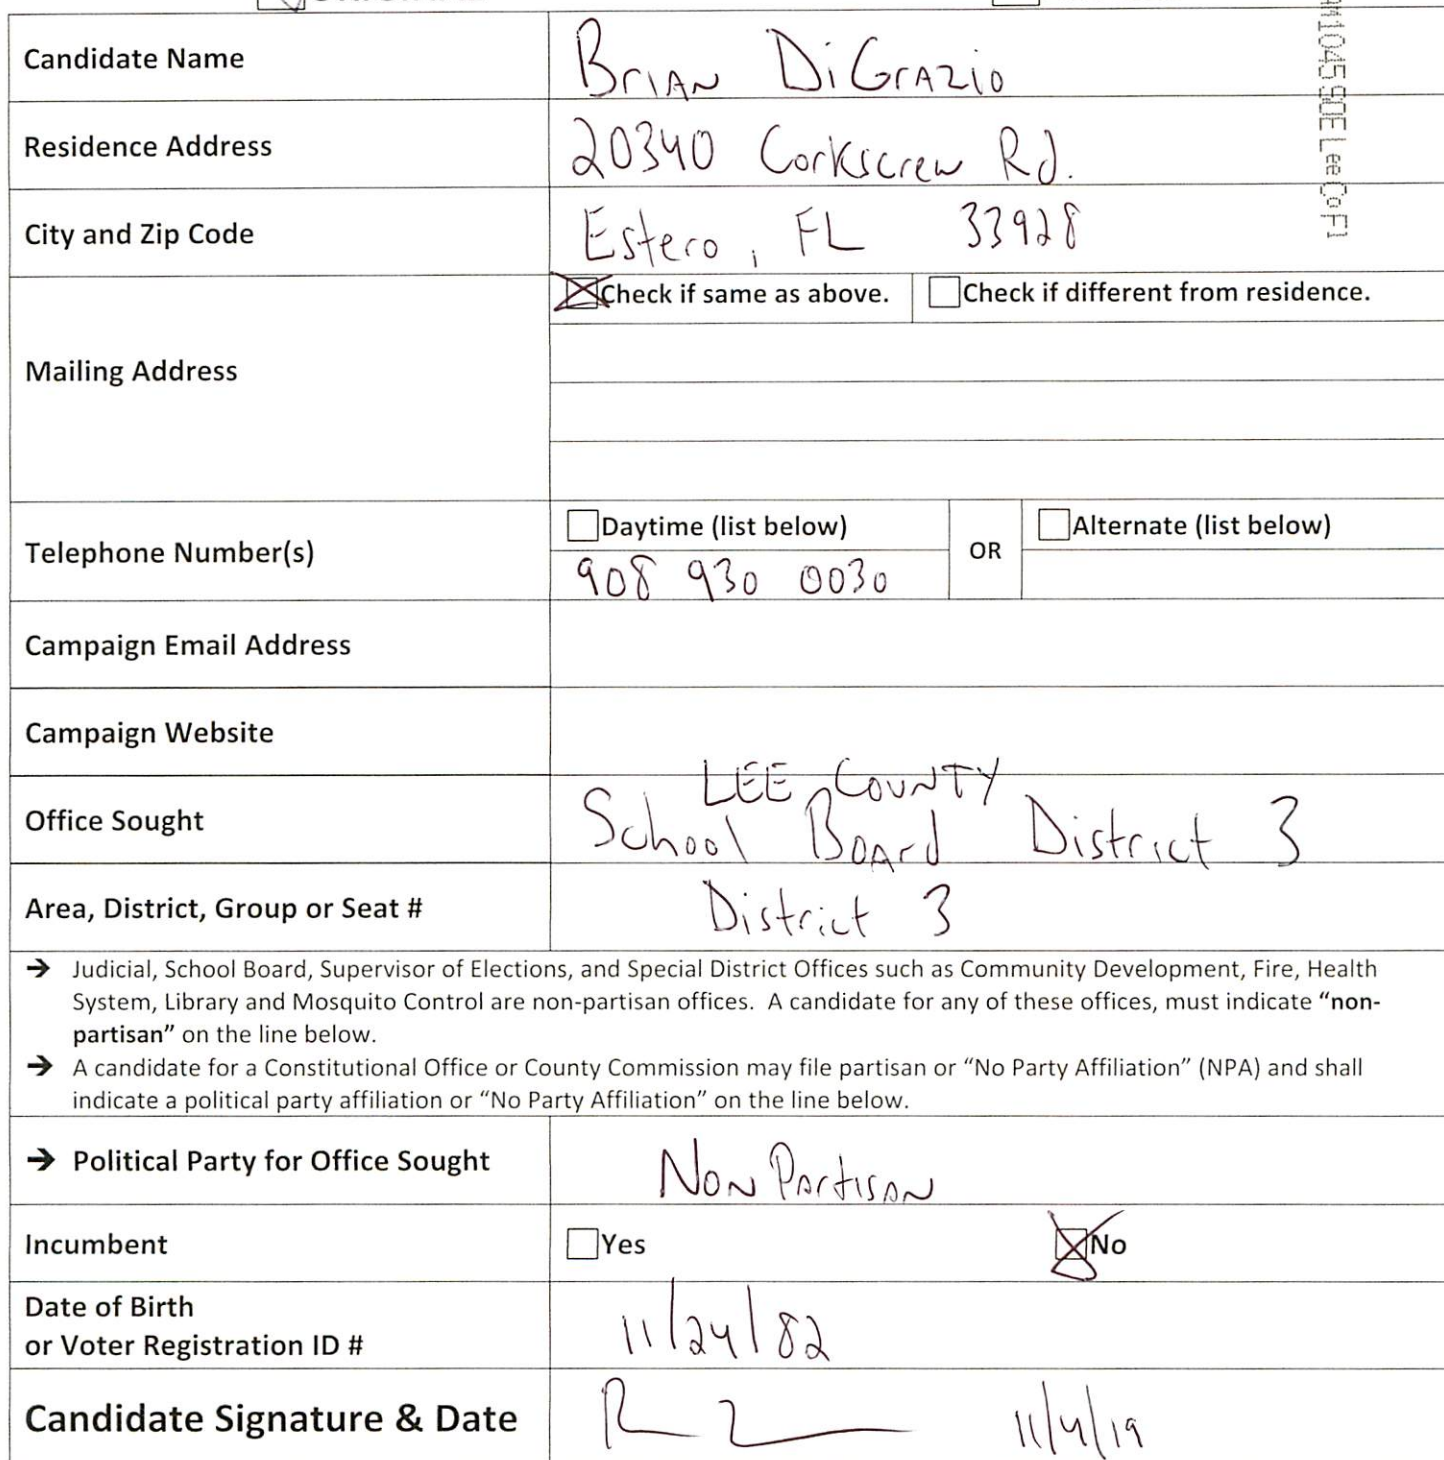 Candidate Name
Brian DiGrazio
Residence Address
20340 Corkscrew Rd.
City and Zip Code
Estero, FL 33928
Mailing Address
Check if same as above.
Check if different from residence.
Telephone Number(s)
Daytime (list below)
908 930 0030
OR
Alternate (list below)
Campaign Email Address
Campaign Website
Office Sought
LEE COUNTY
School Board District 3
Area, District, Group or Seat #
District 3
→ Judicial, School Board, Supervisor of Elections, and Special District Offices such as Community Development, Fire, Health
System, Library and Mosquito Control are non-partisan offices. A candidate for any of these offices, must indicate “non-
partisan” on the line below.
→ A candidate for a Constitutional Office or County Commission may file partisan or “No Party Affiliation” (NPA) and shall
indicate a political party affiliation or “No Party Affiliation” on the line below.
→ Political Party for Office Sought
Non Partisan
Incumbent
Yes
No
Date of Birth
or Voter Registration ID #
11/24/82
Candidate Signature & Date
11/4/19
AM1045 SOE Lee Co Fl